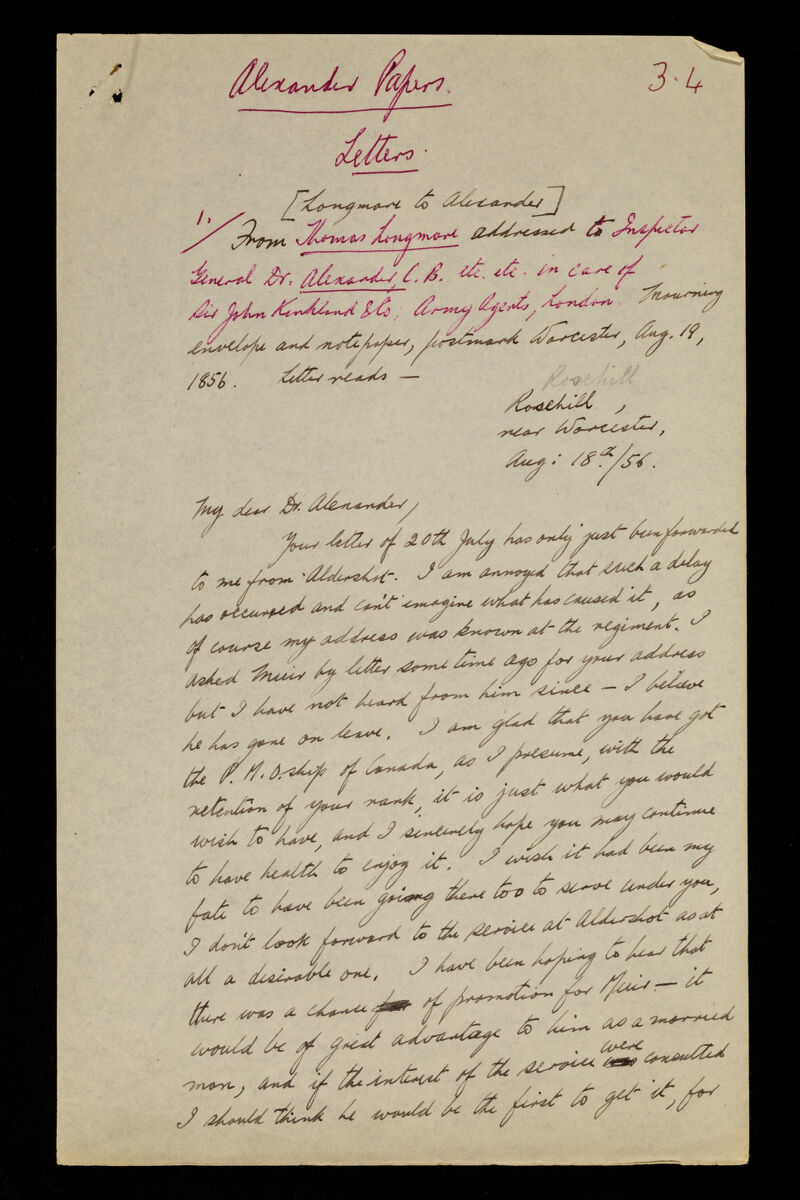 Alexander Papers.
3.4
Letters.
[Longmore to Alexander]
1./ From Thomas Longmore addressed to Inspector
General Dr. Alexander, C. B. etc. etc. in care of
Sir John Kirkland & Co; Army Agents, London. Mourning
envelope and notepaper, postmark Worcester, Aug. 19,
1856. Letter reads —
Rosehill
Rosehill,
near Worcester,
Aug: 18th/56.
My dear Dr. Alexander,
Your letter of 20th July has only just been forwarded
to me from Aldershot. I am annoyed that such a delay
has occurred and can't imagine what has caused it, as
of course my address was known at the regiment. I
asked Muir by letter some time ago for your address
but I have not heard from him since — I believe
he has gone on leave. I am glad that you have got
the P. M. O. ship of Canada, as I presume, with the
retention of your rank, it is just what you would
wish to have, and I sincerely hope you may continue
to have health to enjoy it. I wish it had been my
fate to have been going there too to serve under you,
I don't look forward to the service at Aldershot as at
all a desirable one. I have been hoping to hear that
there was a chance for of promotion for Muir — it
would be of great advantage to him as a married
man, and if the interest of the service were consulted
I should think he would be the first to get it, for